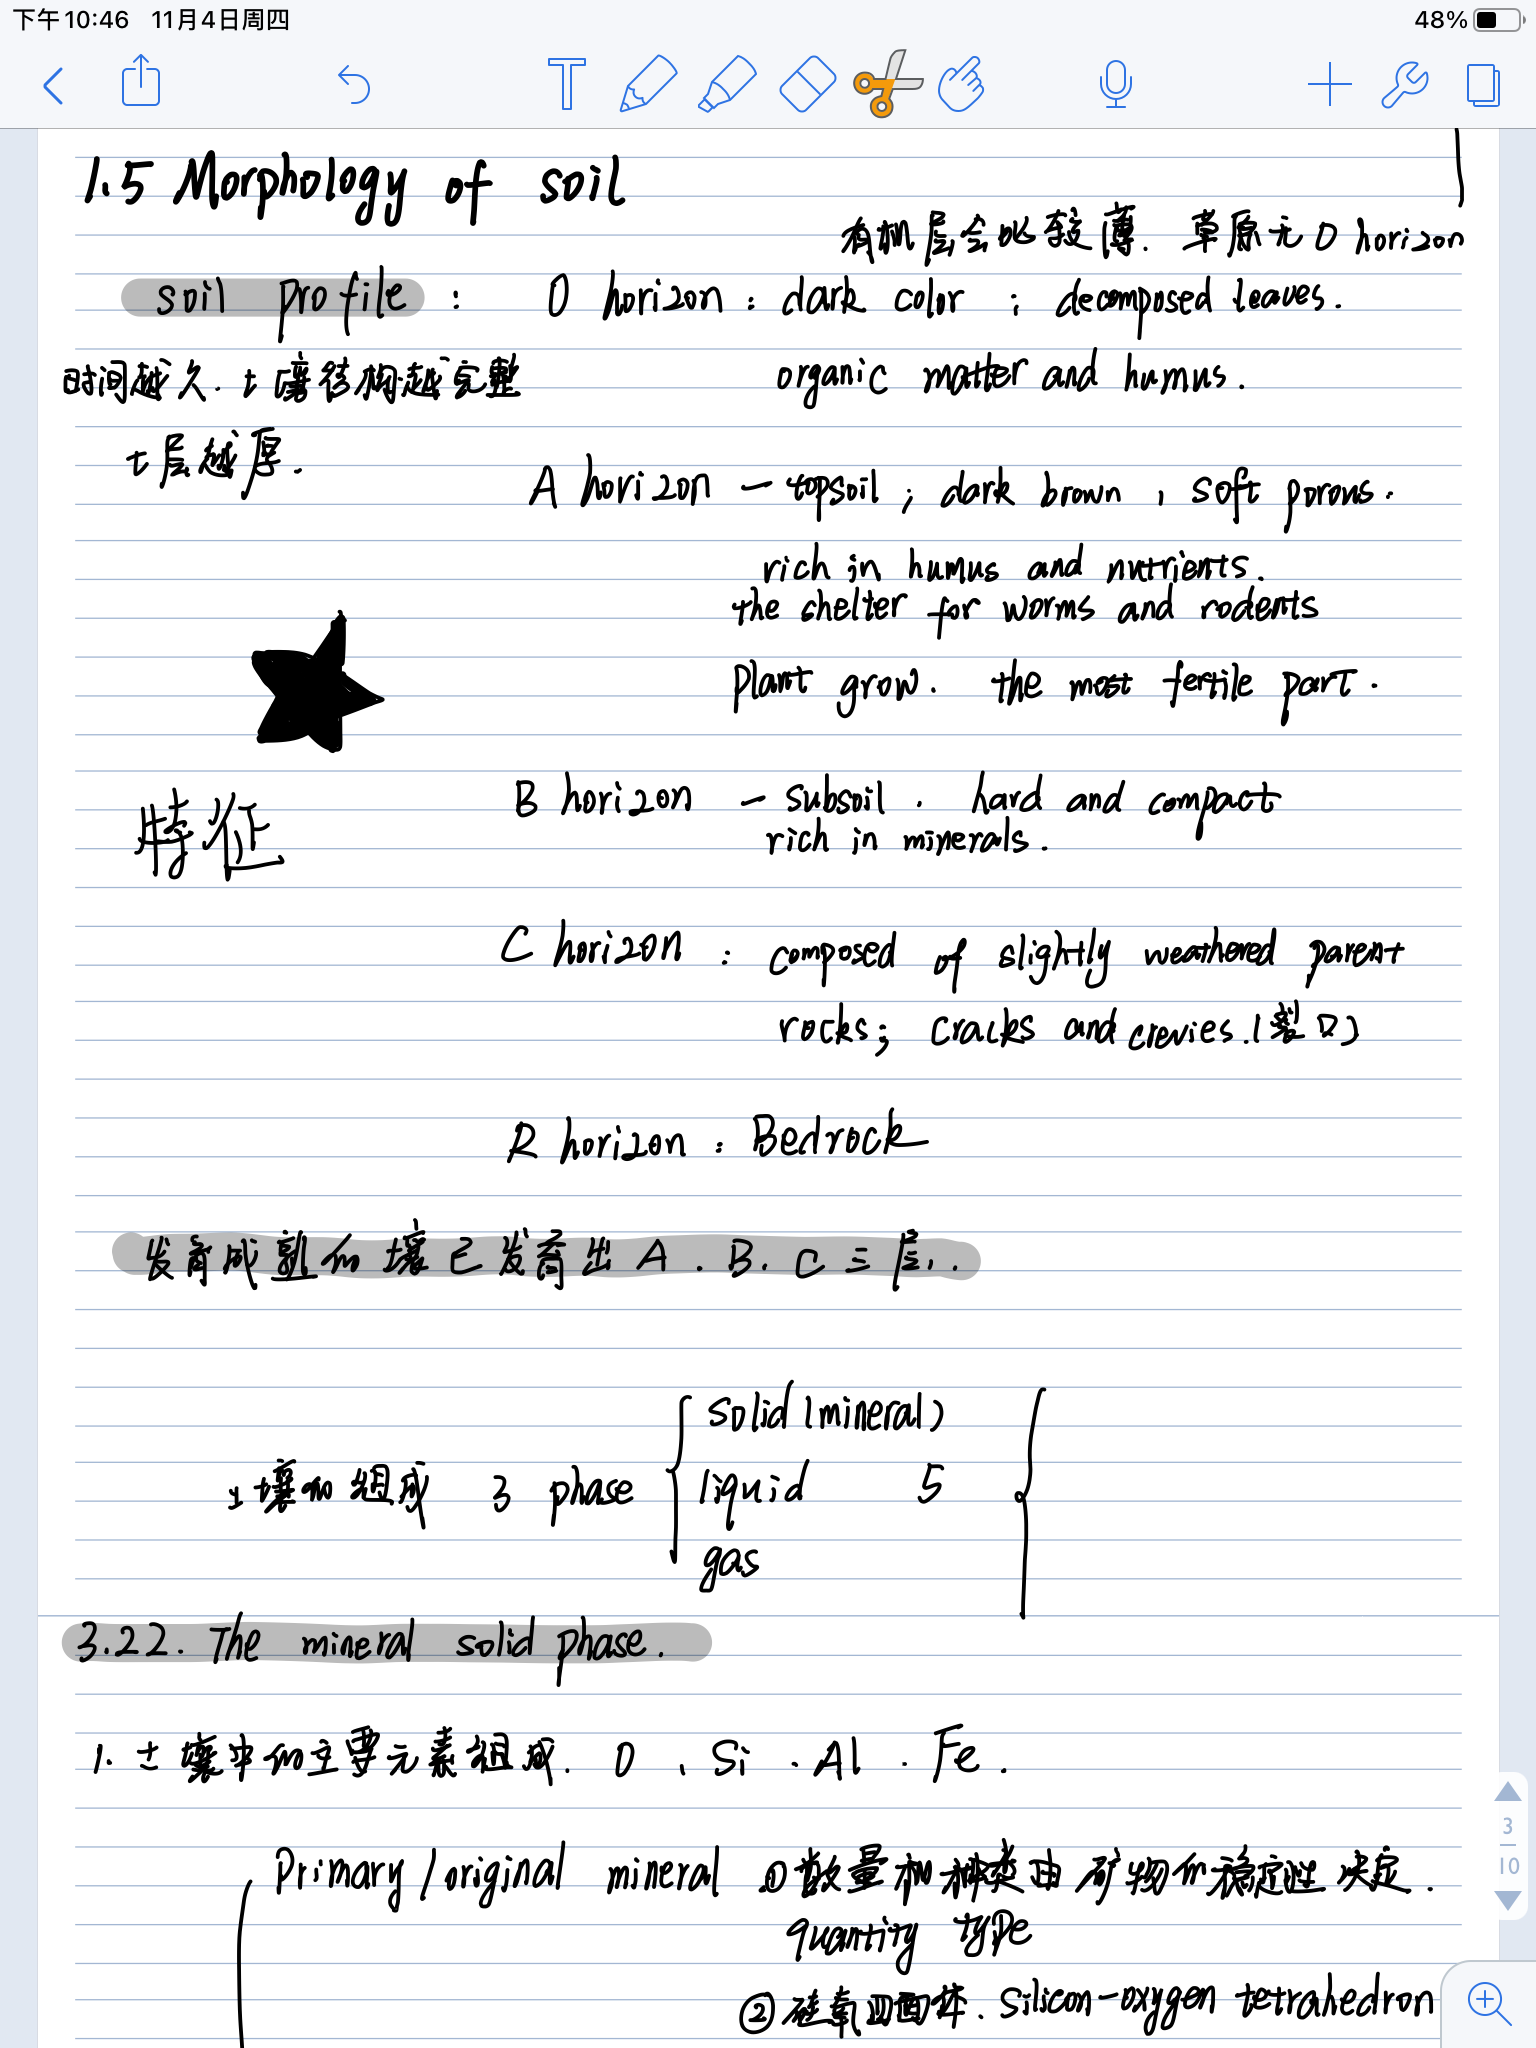 下午10:46 11月4日周四
48%
1.5 Morphology of soil
有机层会比较薄. 草原无O horizon
soil profile : O horizon : dark color ; decomposed leaves.
时间越久.土壤结构越完整
organic matter and humus.
土层越厚.
A horizon — topsoil ; dark brown , soft porous.
rich in humus and nutrients.
the shelter for worms and rodents
Plant grow. the most fertile part.
特征
B horizon — subsoil . hard and compact
rich in minerals.
C horizon : composed of slightly weathered parent
rocks; cracks and crevies.(裂口)
R horizon : Bedrock
发育成熟的壤已发育出A.B.C三层.
solid(mineral)
土壤的组成 3 phase liquid 5
gas
3.22. The mineral solid phase.
1. 土壤中的主要元素组成. O 、Si . Al . Fe.
Primary/original mineral ①数量和种类由矿物的稳定性决定.
quantity type
②硅氧四面体. Silicon-oxygen tetrahedron
3
10